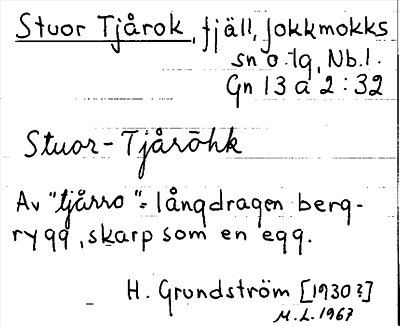 Stuor Tjårok, fjäll, Jokkmokks
sn o. lg, Nb. l.
Gn 13 a 2 : 32
Stuor-Tjåròhk
Av "tjårro" = långdragen berg-
rygg, skarp som en egg.
H. Grundström [1930?]
M.L. 1967